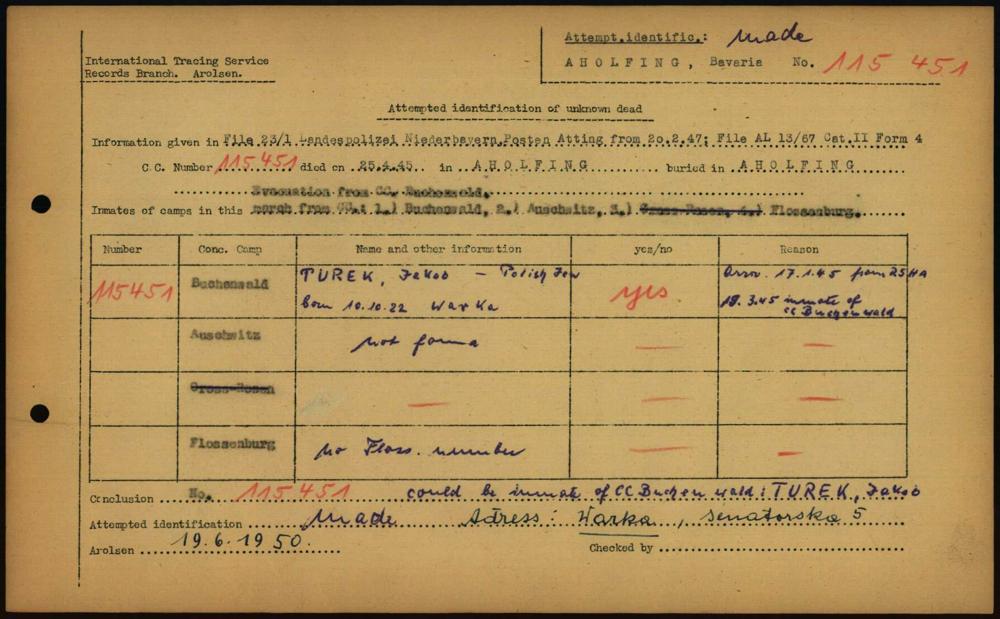 Attempt.identific.: made
International Tracing Service
Records Branch. Arolsen.
AHOLFING, Bavaria No. 115 451
Attempted identification of unknown dead
Information given in File 23/1 Landespolizei Niederbayern, Posten Atting from 20.2.47; File AL 13/67 Cat.II Form 4
C.C. Number 115451 died on 25.4.45. in AHOLFING buried in AHOLFING
Evacuation from CC. Buchenwald.
Inmates of camps in this march from CC.: 1.) Buchenwald, 2.) Auschwitz, 3.) Gross-Rosen, 4.) Flossenburg.
Number Conc. Camp Name and other information yes/no Reason
115451 Buchenwald TUREK, Jakob – Polish Jew yes Arrv. 17.1.45 from
born 10.10.22 Warka 18.3.45 inmate of
CC Buchenwald
Auschwitz not found — —
Gross-Rosen — — —
Flossenburg no Floss. number — —
Conclusion No. 115451 could be inmate of CC Buchenwald: TUREK, Jakob
Attempted identification made Adress: Warka, Senatorska 5
Arolsen 19.6.1950. Checked by